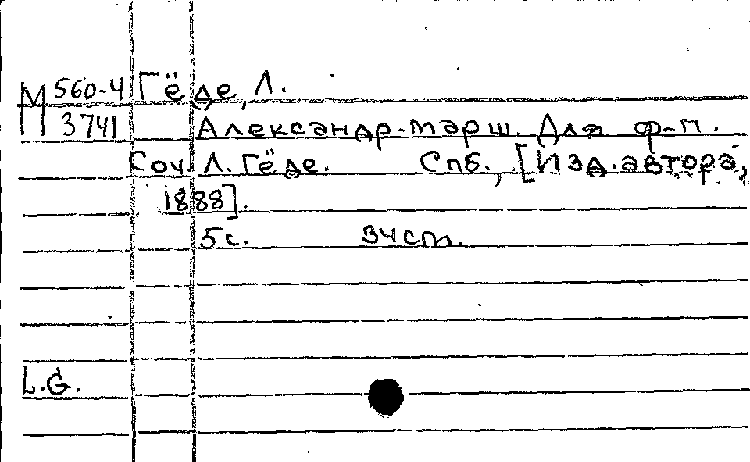 М 560-4 Гёде, Л.
3741 Александр-марш. Для ф-п.
Соч. Л. Гёде. Спб., [Изд. автора,
1888].
5 с. 34 cm.
L.G.